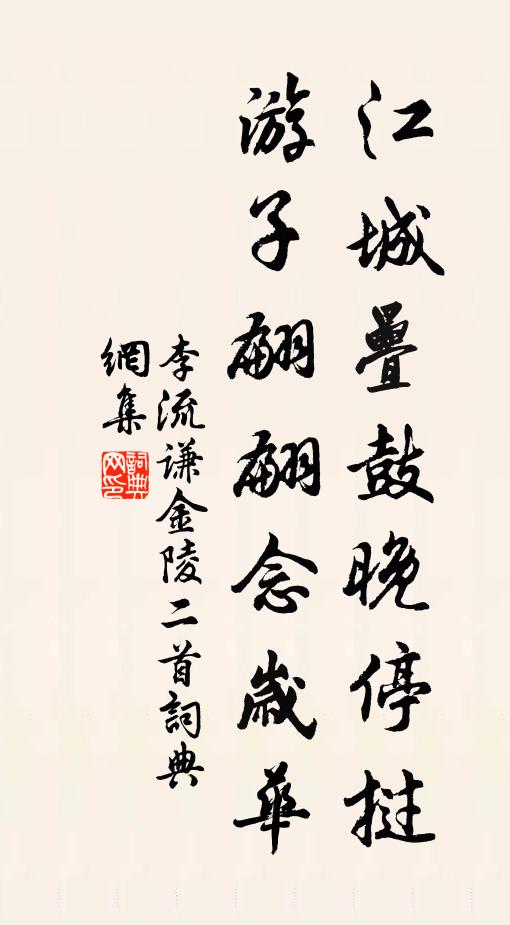 江城疊鼓晚停撾
游子翩翩念歲華
李流谦金陵二首詞典
網集
詞典网印